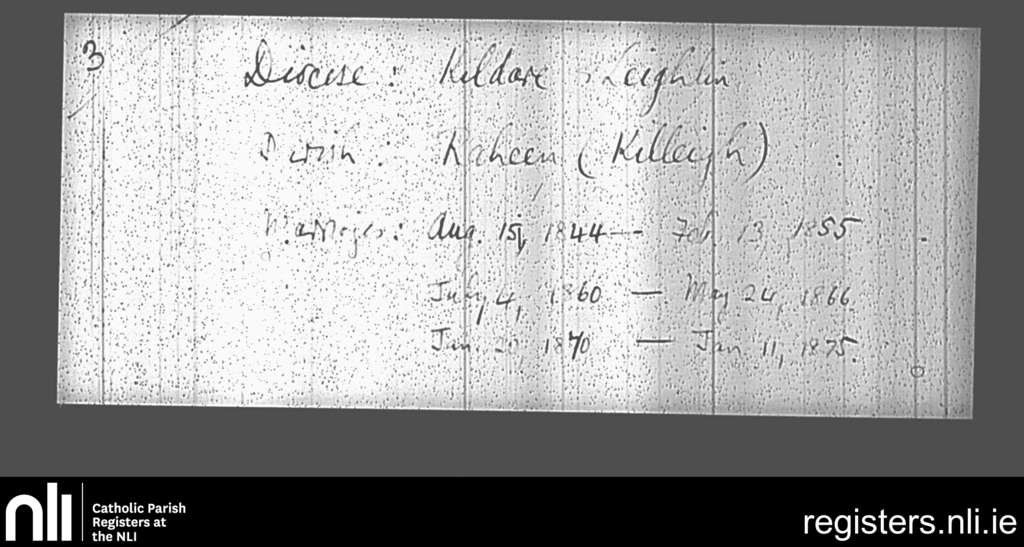 3
Diocese: Kildare & Leighlin
Parish: Raheen (Killeigh)
Marriages: Aug. 15, 1844 — Feb. 13, 1855
July 4, 1860 — May 24, 1866.
Jan. 20, 1870 — Jan 11, 1875.
nli
Catholic Parish
Registers at
the NLI
registers.nli.ie